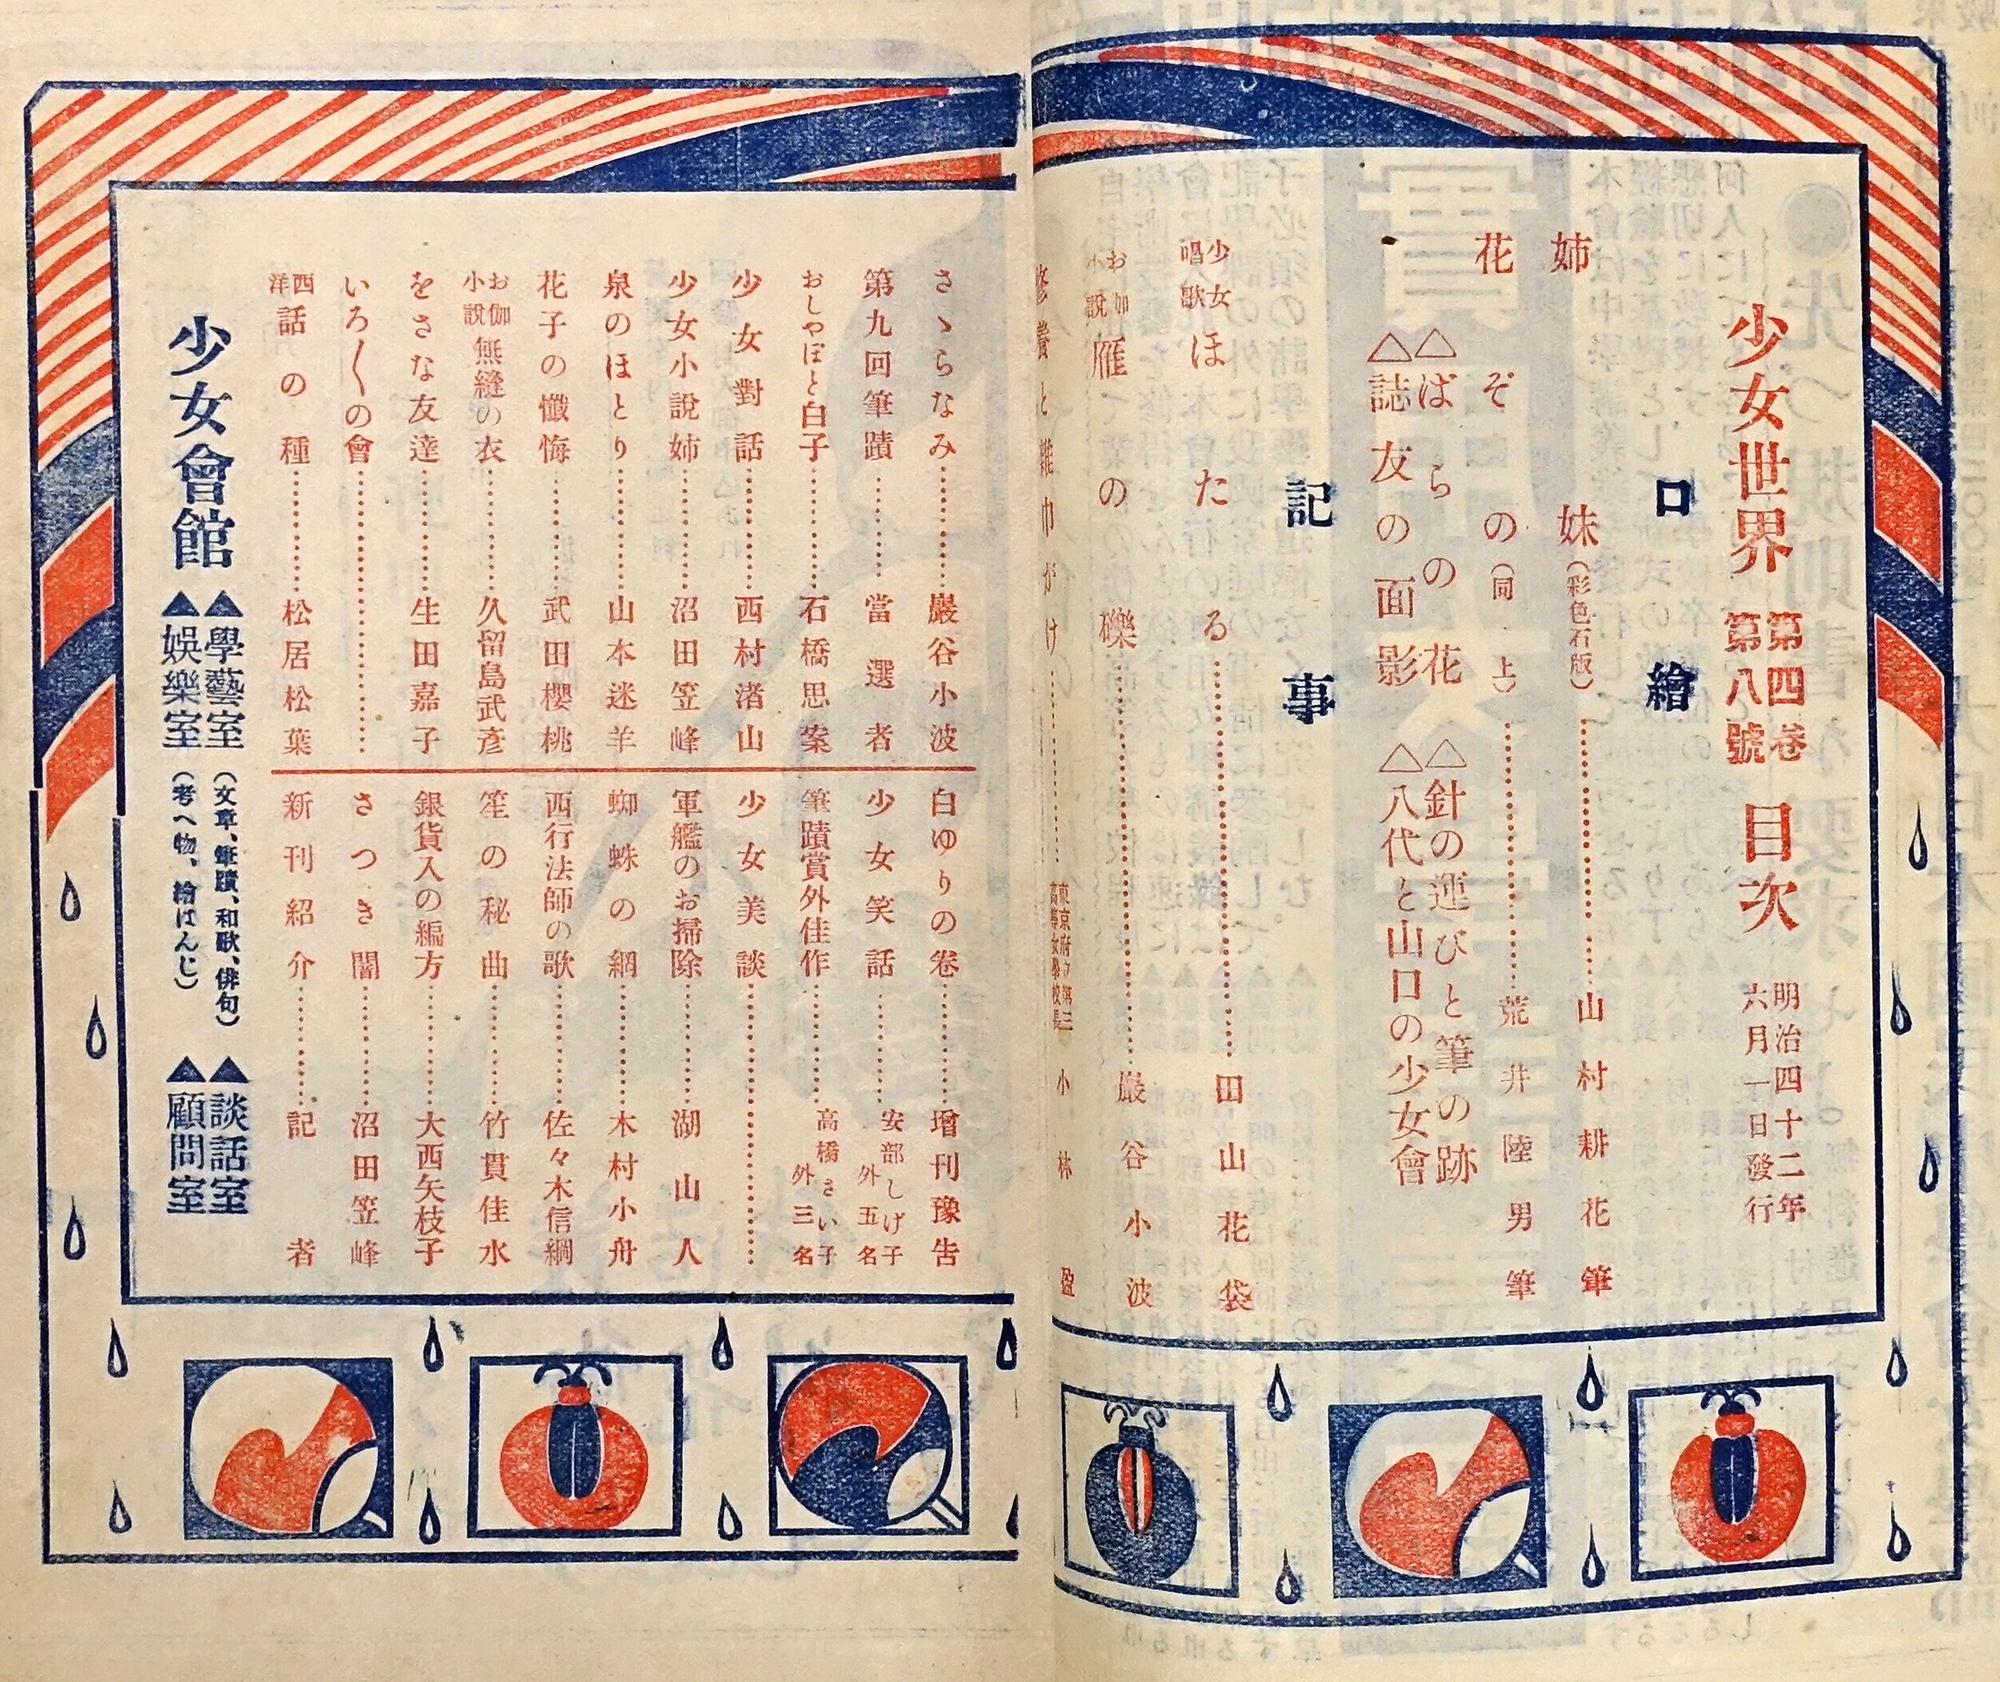 少女世界 第四卷第八號 目次 明治四十二年六月一日發行
口繪
姉妹(彩色石版)山村耕花筆
花ぞの(同上)荒井陸男筆
△ばらの花 △針の運びと筆の跡
△誌友の面影 △八代と山口の少女會
記事
少女唱歌 ほたる 田山花袋
お伽小說 雁の礫 巖谷小波
修養と雜巾がけ 東京府立第三高等女學校長 小林盈
さゝらなみ 巖谷小波
第九回筆蹟 當選者
おしやぼと白子 石橋思案
少女對話 西村渚山
少女小說姉 沼田笠峰
泉のほとり 山本迷羊
花子の懺悔 武田櫻桃
お伽小說 無縫の衣 久留島武彥
をさな友達 生田嘉子
いろ〱の會
西洋話の種 松居松葉
白ゆりの卷 增刊豫吿
少女笑話 安部しげ子 外五名
筆蹟賞外佳作 高橋さい子 外三名
少女美談
軍艦のお掃除 湖山人
蜘蛛の網 木村小舟
西行法師の歌 佐々木信綱
笙の秘曲 竹貫佳水
銀貨入の編方 大西矢枝子
さつき闇 沼田笠峰
新刊紹介 記者
少女會館
▲學藝室(文章、筆蹟、和歌、俳句)▲談話室
▲娯樂室(考へ物、繪はんじ)▲顧問室